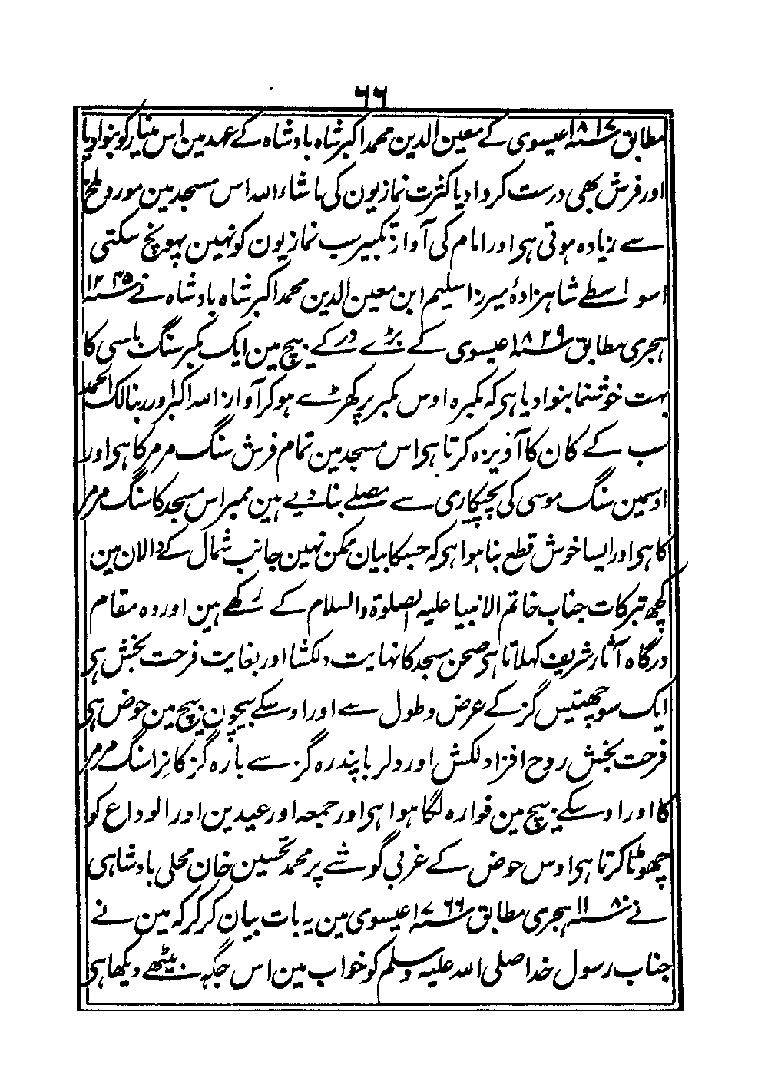 ٦٦
مطابق ۱۸۱۷ عیسوی کے معین الدین محمد اکبر شاہ بادشاہ کے عہد مین اس مینار کو بنوا دیا
اور فرش بھی درست کروا دیا کثرت نمازیون کی ماشاء اللہ اس مسجد مین مور و ملخ
سے زیادہ ہوتی ہی اور امام کی آواز تکبیر سب نمازیون کو نہین پہونچ سکتی
اسواسطے شاہزادۂ میرزا سلیم ابن معین الدین محمد اکبر شاہ بادشاہ نے ۱۲۴۵
ہجری مطابق ۱۸۲۹ عیسوی کے بڑے در کے بیچ مین ایک مکبر سنگ باسی کا
بہت خوشنما بنوا دیا ہی کہ مکبرہ اوس مکبر پر کھڑے ہوکر آواز اللہ اکبر اور ربنا لک الحمد
سب کے کان کا آویزہ کرتا ہی اس مسجد مین تمام فرش سنگ مرمر کا ہی اور
اوسمین سنگ موسی کی پچیکاری سے مصلے بنا دیے ہین ممبر اس مسجد کا سنگ مرمر
کا ہی اور ایسا خوش قطع بنا ہوا ہی کہ جسکا بیان ممکن نہین جانب شمال کے دالان مین
کچھ تبرکات جناب خاتم الانبیا علیہ الصلوۃ والسلام کے رکھے ہین اور وہ مقام
درگاہ آثار شریف کہلاتا ہی صحن مسجد کا نہایت دلکشا اور بغایت فرحت بخش ہی
ایک سو چھتیس گز کے عرض و طول سے اور اوسکے بیچون بیچ مین حوض ہی
فرحت بخش روح افزا دلکش اور دلربا پندرہ گز سے بارہ گز کا نرا سنگ مرمر
کا اور اوسکے بیچ مین فوارہ لگا ہوا ہی اور جمعہ اور عیدین اور الوداع کو
چھوٹا کرتا ہی اوس حوض کے غربی گوشے پر محمد تحسین خان محلی بادشاہی
نے ۱۱۸۰ ہجری مطابق ۱۷۶۶ عیسوی مین یہ بات بیان کر کر کہ مین نے
جناب رسول خدا صلی اللہ علیہ وسلم کو خواب مین اس جگہ بیٹھے دیکھا ہی